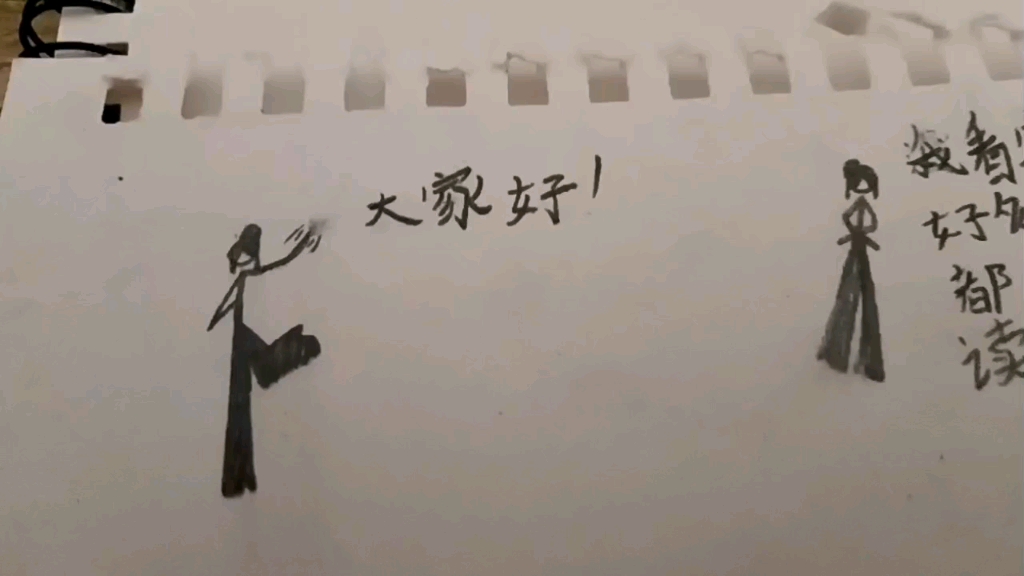 大家好!
我看
好
都
读